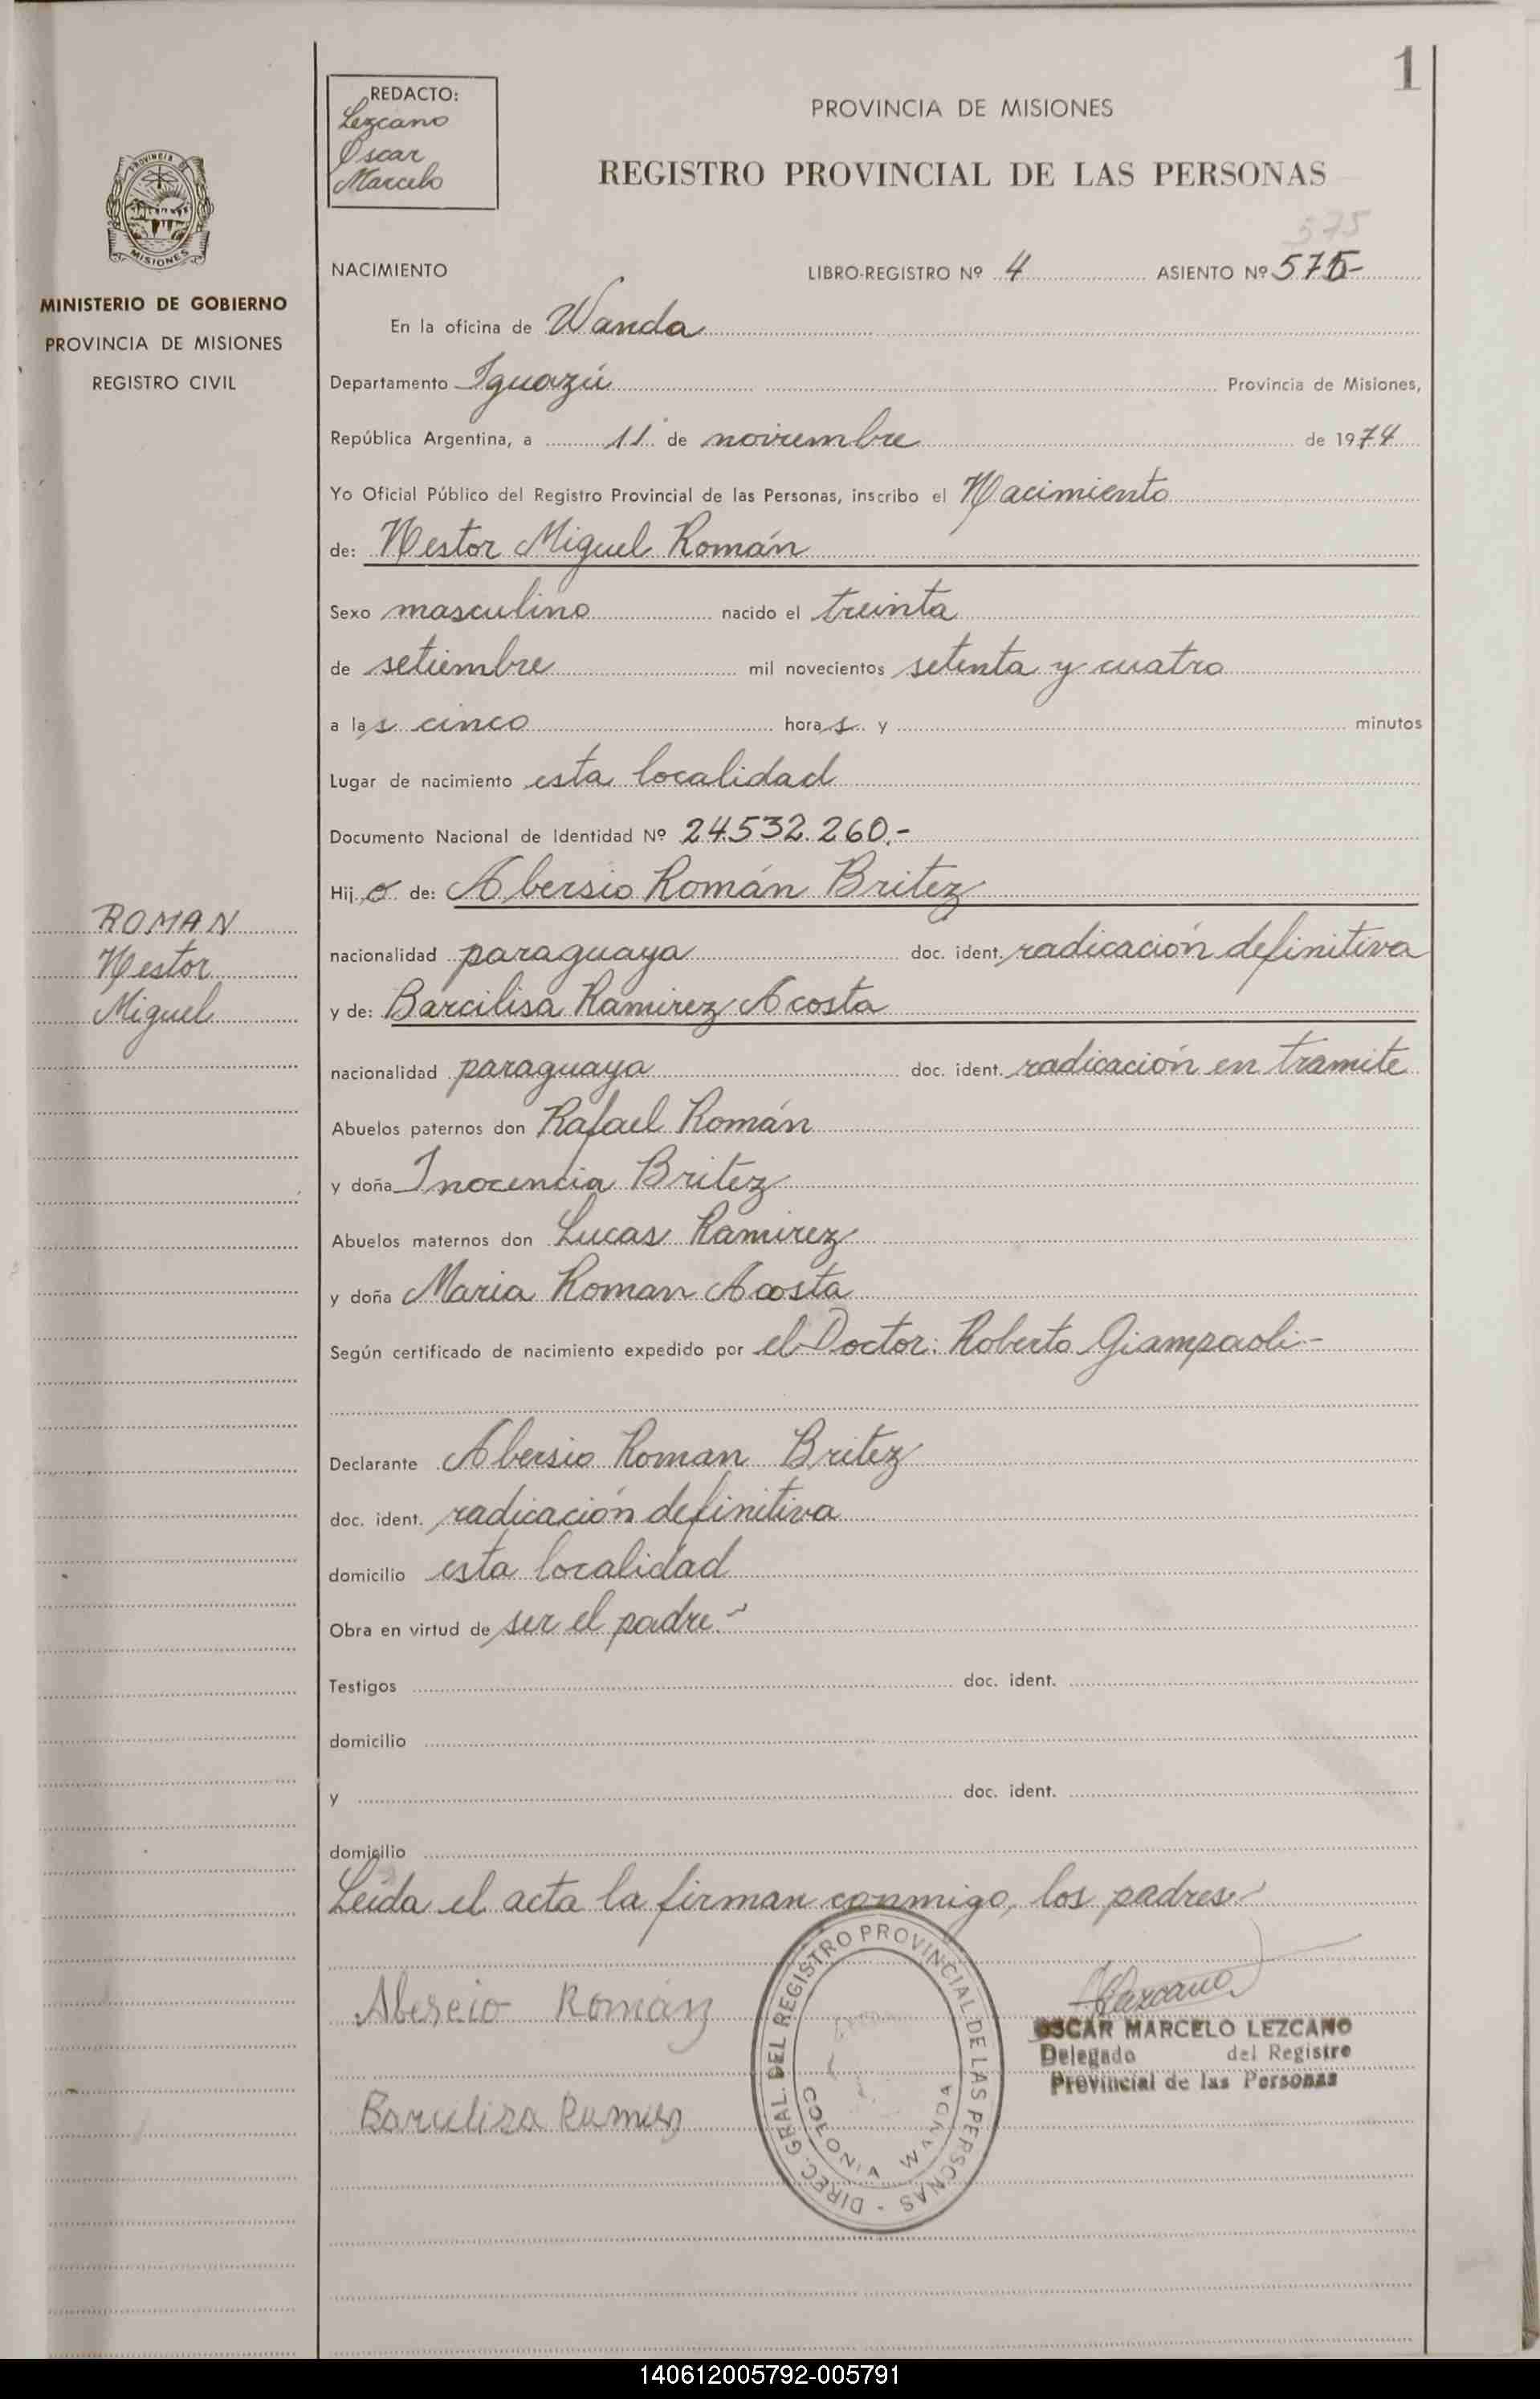 1
REDACTO:
Lezcano
Oscar
Marcelo
PROVINCIA DE MISIONES
REGISTRO PROVINCIAL DE LAS PERSONAS
PROVINCIA DE
MISIONES
MINISTERIO DE GOBIERNO
PROVINCIA DE MISIONES
REGISTRO CIVIL
575
NACIMIENTO LIBRO-REGISTRO Nº 4 ASIENTO Nº 575-
En la oficina de Wanda
Departamento Iguazú Provincia de Misiones,
República Argentina, a 11 de noviembre de 1974
Yo Oficial Público del Registro Provincial de las Personas, inscribo el Nacimiento
de: Nestor Miguel Román
Sexo masculino nacido el treinta
de setiembre mil novecientos setenta y cuatro
a las cinco horas y minutos
Lugar de nacimiento esta localidad
Documento Nacional de Identidad Nº 24.532.260.-
Hijo de: Abersio Román Britez
ROMAN
Nestor
Miguel
nacionalidad paraguaya doc. ident. radicación definitiva
y de: Barcilisa Ramirez Acosta
nacionalidad paraguaya doc. ident. radicación en tramite
Abuelos paternos don Rafael Román
y doña Inocencia Britez
Abuelos maternos don Lucas Ramirez
y doña Maria Roman Acosta
Según certificado de nacimiento expedido por el Doctor: Roberto Giampaoli-
Declarante Abersio Roman Britez
doc. ident. radicación definitiva
domicilio esta localidad
Obra en virtud de ser el padre.-
Testigos doc. ident.
domicilio
y doc. ident.
domicilio
Leida el acta la firman conmigo, los padres.-
Abercio Román
Barcilisa Ramirez
DIREC. GRAL. DEL REGISTRO PROVINCIAL DE LAS PERSONAS -
COLONIA WANDA
Lezcano
OSCAR MARCELO LEZCANO
Delegado del Registro
Provincial de las Personas
140612005792-005791